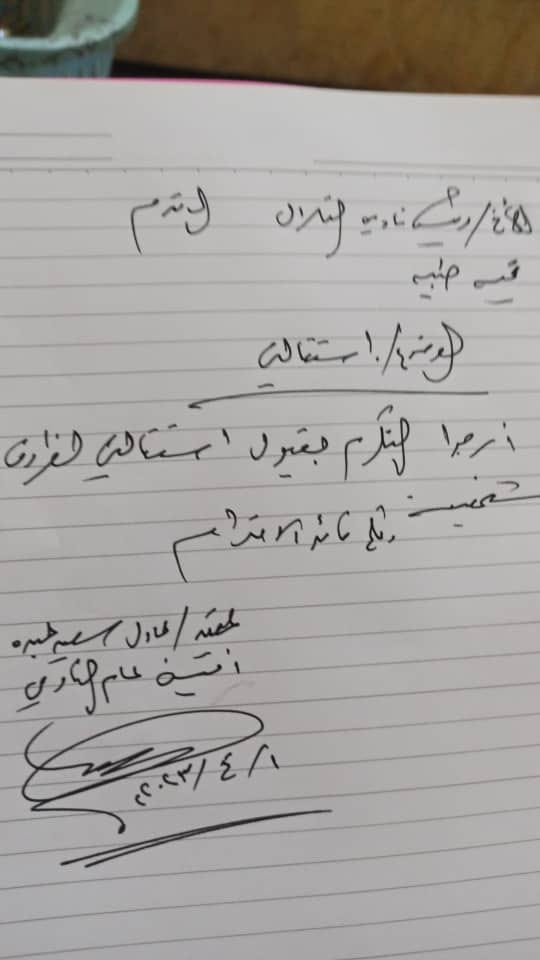 الأخ/ رئيس نادي التلال المحترم
تحية طيبة
الموضوع/ استقالة
أرجوا التكرم بقبول استقالتي لظروف
شخصية ولكم فائق الاحترام
مقدمه/ عادل سعيد
أمين عام النادي
٢٠٢٣/٤/١